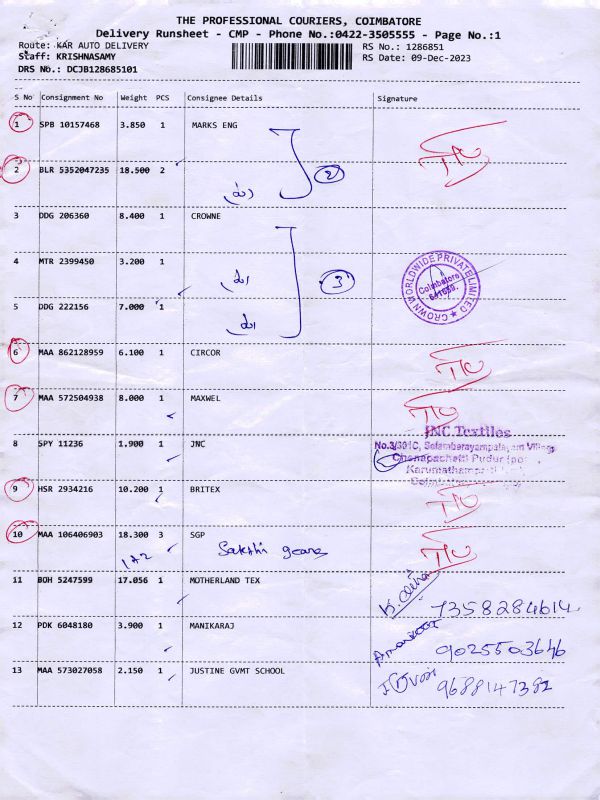 THE PROFESSIONAL COURIERS, COIMBATORE
Delivery Runsheet - CMP - Phone No.:0422-3505555 - Page No.:1
Route: KAR AUTO DELIVERY
RS No.: 1286851
Staff: KRISHNASAMY
RS Date: 09-Dec-2023
DRS No.: DCJB128685101
S No Consignment No Weight PCS Consignee Details Signature
1 SPB 10157468 3.850 1 MARKS ENG
2 BLR 5352047235 18.500 2
2
3 DDG 206360 8.400 1 CROWNE
4 MTR 2399450 3.200 1
3
CROWN WORLDWIDE PRIVATE LIMITED
Coimbatore
5 DDG 222156 7.000 1
6 MAA 862128959 6.100 1 CIRCOR
7 MAA 572504938 8.000 1 MAXWEL
JNC Textiles
8 SPY 11236 1.900 1 JNC
No.3/301C, Selambarayampalayam Village
Chenapachetti Pudur
9 HSR 2934216 10.200 1 BRITEX
10 MAA 106406903 18.300 3 SGP
1 & 2 Sakthi gears
11 BOH 5247599 17.056 1 MOTHERLAND TEX
7358284614
12 PDK 6048180 3.900 1 MANIKARAJ
9025503646
13 MAA 573027058 2.150 1 JUSTINE GVMT SCHOOL
9688147382